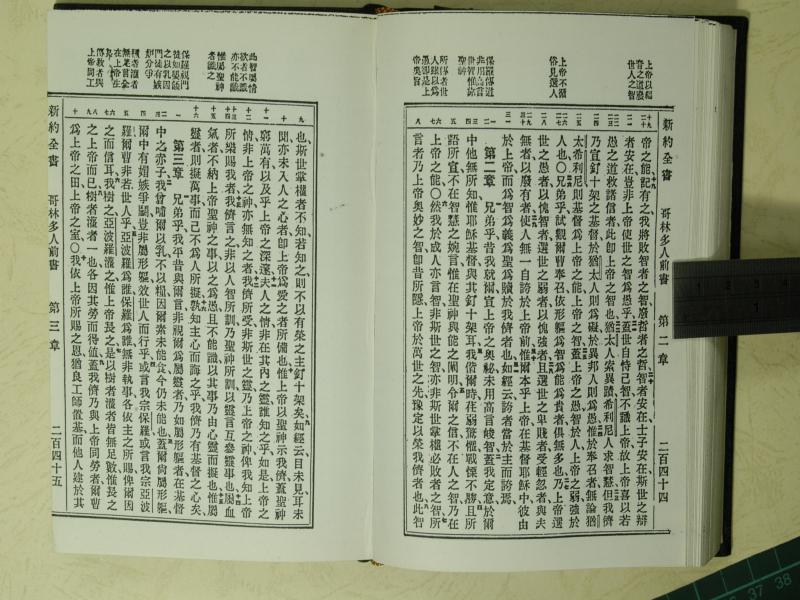 新約全書 哥林多人前書 第二章 二百四十四
上帝以福
音之道廢
世人之智
上帝不循
俗見選人
保羅傳道
非用高言
世智惟
聖神
所傳者世
人雖以爲
愚卻是上
帝奧旨
帝之能記有之我將敗智者之智廢哲者之哲智者安在士子安在斯世之辯
者安在豈非上帝使世之智爲愚乎蓋世自恃己智不識上帝故上帝喜以若
愚之道救諸信者此卽上帝之智也猶太人索異蹟希利尼人求智慧但我儕
乃宣釘十架之基督於猶太人則爲礙於異邦人則爲愚惟於奉召者無論猶
太希利尼則基督爲上帝之能上帝之智蓋上帝之愚智於人上帝之弱強於
人也〇兄弟乎試觀爾曹奉召依形軀爲智爲能爲貴者俱無多也乃上帝選
世之愚者以愧智者選世之弱者以愧強者且選世之卑賤者受輕忽者與夫
無者以廢有者使人無一自誇於上帝前惟爾本乎上帝在基督耶穌中彼由
於上帝而爲智爲義爲聖爲贖於我儕者也如經云誇者當於主而誇焉
第二章 兄弟乎昔我就爾宣上帝之奧秘未用高言峻智蓋我定意於爾
中他無所知惟耶穌基督與其釘十架耳我偕爾時在弱驚懼戰慄不勝且所
語所宣不在智慧之婉言惟在聖神與能之闡明令爾之信不在人之智乃在
上帝之能〇然我於成人亦言智非斯世之智亦非斯世掌權必敗者之智所
言者乃上帝奧妙之智卽昔所隱上帝於萬世之先豫定以榮我儕者也此智
此智屬情
欲者不識
亦不能識
惟屬聖神
者識之
保羅視門
徒如嬰孩
之以乳因
門徒有嫉
妒分爭
種者灌者
無足言全
在上帝生
傳教者與
上帝同工
也斯世掌權者不知若知之則不以有榮之主釘十架矣如經云目未見耳未
聞亦未入人之心者卽上帝爲愛之者所備也惟上帝以聖神示我儕蓋聖神
窮萬有以及乎上帝之深邃夫人之情非在其內之靈誰知之乎如是上帝之
情非上帝之神亦無知之者我儕所受非斯世之靈乃上帝之神俾我知上帝
所樂賜我者我儕言之非以人智所訓乃聖神所訓以靈言互參靈事也屬血
氣者不納上帝聖神之事以之爲愚且不能識以其事乃由心靈而擬也惟屬
靈者則擬萬事而己不爲人所擬孰知主心而誨之乎我儕乃有基督之心矣
第三章 兄弟乎我平昔與爾言非視爾爲屬靈者乃如屬形軀者在基督
中之赤子我嘗哺爾以乳不以糧因爾素未能食今仍未能也蓋爾尙屬形軀
爾中有媢嫉爭鬬豈非屬形軀效世人而行乎或言我宗保羅或言我宗亞波
羅爾曹非若世人乎亞波羅爲誰保羅爲誰無非執事各依主之所賜俾爾因
之而信耳我樹之亞波羅灌之惟上帝長之是以樹者灌者皆無足數惟長之
之上帝而已樹者灌者一也各因其勞而得值蓋我儕乃與上帝同勞者爾曹
爲上帝之田上帝之室〇我依上帝所賜之恩猶良工師置基而他人建於其
新約全書 哥林多人前書 第三章 二百四十五